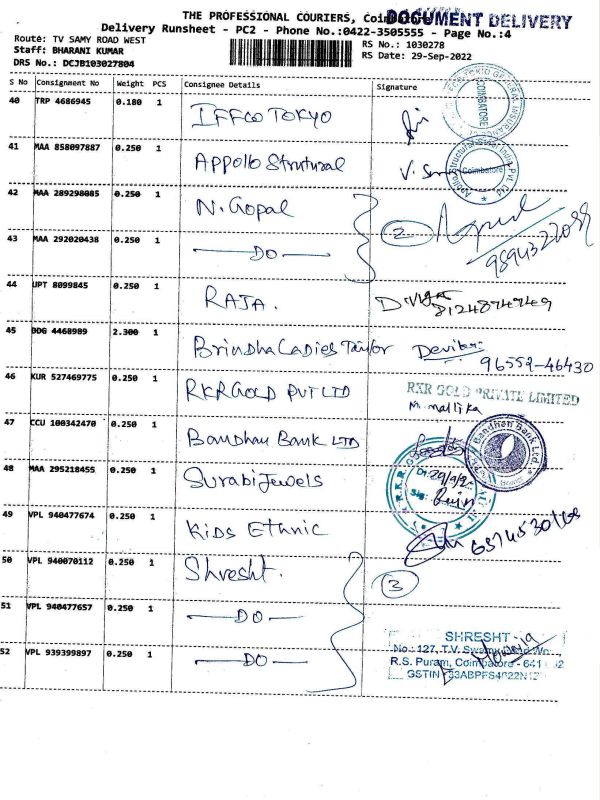 THE PROFESSIONAL COURIERS, Coimbatore
DOCUMENT DELIVERY
Delivery Runsheet - PC2 - Phone No.:0422-3505555 - Page No.:4
Route: TV SAMY ROAD WEST
RS No.: 1030278
Staff: BHARANI KUMAR
RS Date: 29-Sep-2022
DRS No.: DCJB103027804
S No Consignment No Weight PCS Consignee Details Signature
40 TRP 4686945 0.180 1 IFFCO TOKYO
COIMBATORE
41 MAA 858097887 0.250 1 Appollo Strutural
Coimbatore
42 MAA 289298085 0.250 1 N. Gopal
2
9894322088
43 MAA 292020438 0.250 1 — DO —
44 UPT 8099845 0.250 1 RAJA.
8124874949
45 DDG 4468989 2.300 1 Brindha Ladies Taylor
96552-46430
46 KUR 527469775 0.250 1 RKR GOLD PVT LTD
RKR GOLD PRIVATE LIMITED
M. mallika
47 CCU 100342470 0.250 1 Bandhan Bank LTD
Bandhan Bank Ltd.
48 MAA 295218455 0.250 1 Surabi Jewels
49 VPL 940477674 0.250 1 Kids Ethnic
50 VPL 940070112 0.250 1 Shresht.
3
51 VPL 940477657 0.250 1 — DO —
52 VPL 939399897 0.250 1 — DO —
SHRESHT
No.: 127, T.V. Swamy Road
R.S. Puram, Coimbatore - 641
GSTIN